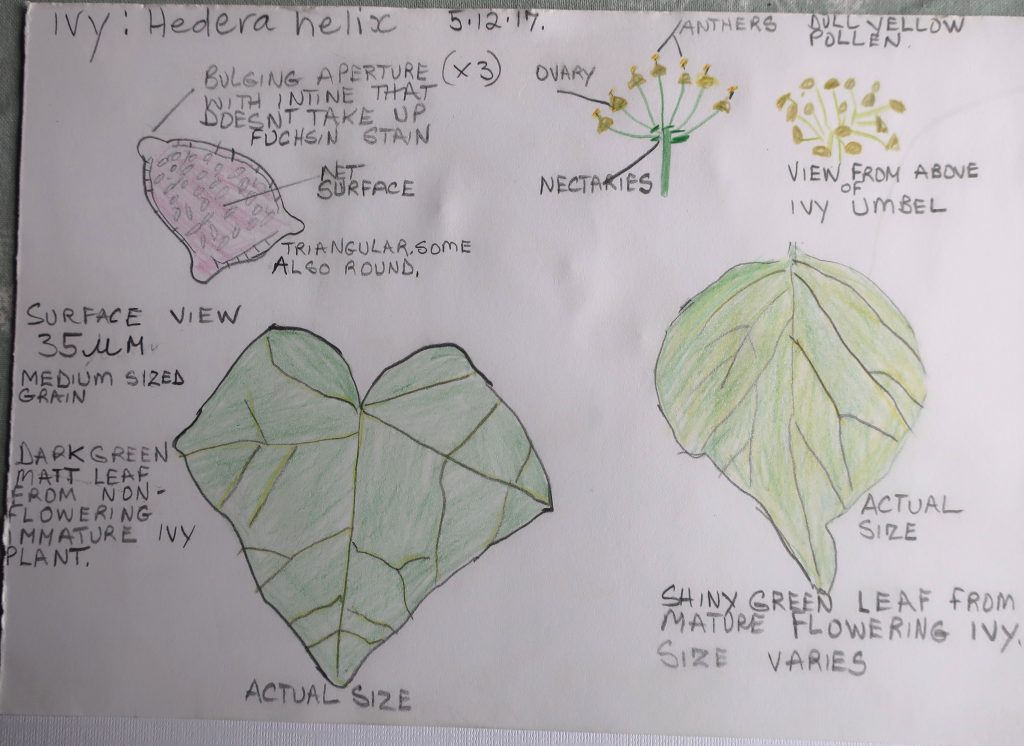 IVY: Hedera helix 5.12.17.
BULGING APERTURE (X3)
WITH INTINE THAT
DOESNT TAKE UP
FUCHSIN STAIN
NET
SURFACE
TRIANGULAR. SOME
ALSO ROUND.
SURFACE VIEW
35 µM.
MEDIUM SIZED
GRAIN
ANTHERS
OVARY
NECTARIES
DULL YELLOW
POLLEN.
VIEW FROM ABOVE
OF
IVY UMBEL
DARK GREEN
MATT LEAF
FROM NON-
FLOWERING
IMMATURE IVY
PLANT.
ACTUAL SIZE
ACTUAL
SIZE
SHINY GREEN LEAF FROM
MATURE FLOWERING IVY.
SIZE VARIES